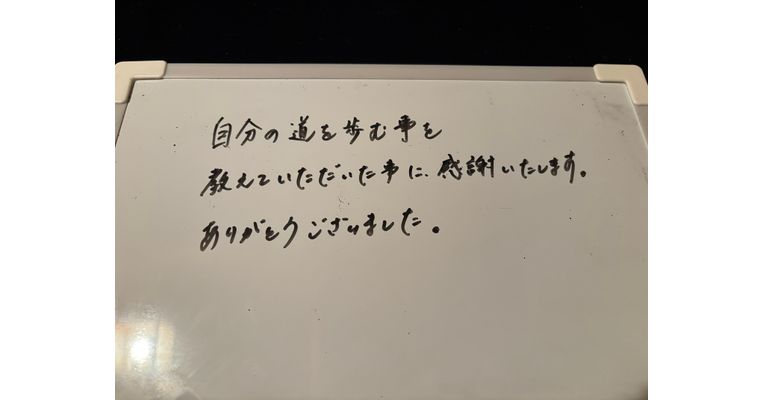 自分の道を歩む事を
教えていただいた事に、感謝いたします。
ありがとうございました。